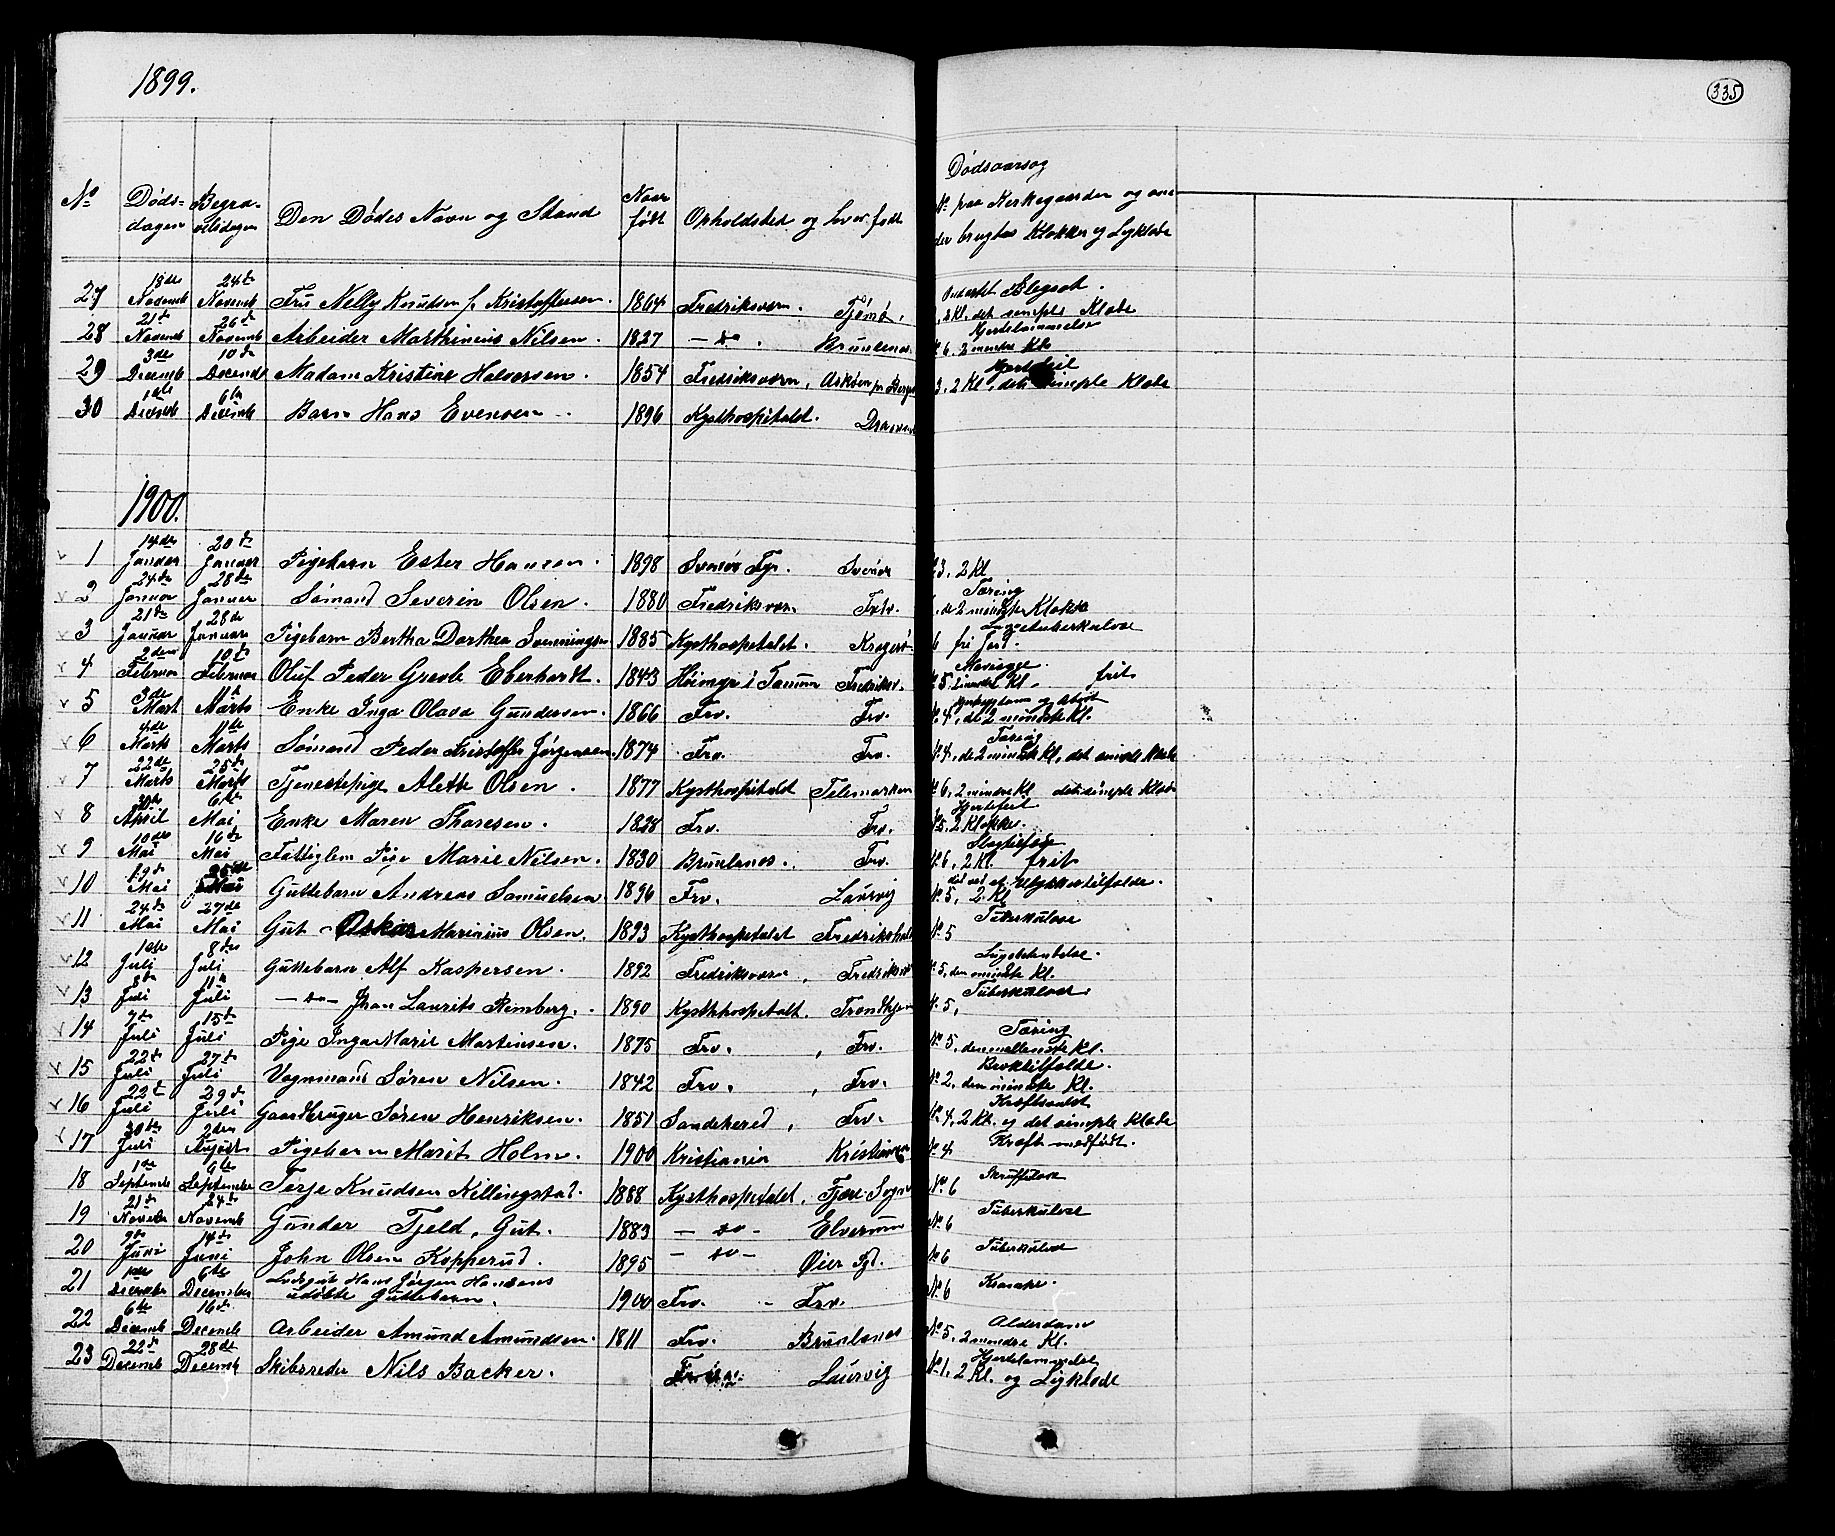 1899.
335
No Døds- Begra- Den Dødes Navn og Stand Naar Opholdsted og hvor født Dødsaarsag
dagen velsdagen født No paa Kirkegaarden og om
der brugtes Klokker og Ligklæde
27 18de Novemb 24de Novemb Fru Nelly Knudsen f. Kristoffersen. 1864 Fredriksværn. Tjømø. Blegsot. 2 Kl. det simple Klæde
28 21de Novemb 26de Novemb Arbeider Marthinius Nilsen. 1827 -do-. Brunlanæs. Hjertelammelse No 6, 2 mindre Kl.
29 3de Decemb 10de Decemb Madam Kristine Halvorsen. 1854 Fredriksværn, Askøen pr Bergen Hjertefeil 3. 2 Kl, det simple Klæde
30 1ste Decemb 6te Decemb Barn Hans Evensen 1896 Kysthospitalet.
1900.
1 14de Januar 20de Januar Pigebarn Ester Hansen. 1898 Svenør Fyr. Svenør No 3, 2 Kl
2 24de Januar 28de Januar Sømand Severin Olsen. 1880 Fredriksværn Frdv. Tæring de 2 mindste Klokke
3 21de Januar 28de Januar Pigebarn Bertha Dorthea Svenningsen 1885 Kysthospitalet. Kragerø Lungetuberkulose 6 fri Jord.
4 2den Februar 10de Februar Oluf Peder Grevle Eberhardt. 1843 Høimyr i Tanum Fredriksv. No 5. 2 mindst Kl. frit
5 3de Mart Marts Enke Inga Olava Gundersen. 1866 Frv. Frv. No 4, de 2 mindste Kl.
6 4de Marts 11te Marts Sømand Peder Kristoffer Jørgensen. 1874 Frv. Frv. Tæring No 4, de 2 mindste Kl, det simple Klæde
7 22de Marts 25de Marts Tjenestepige Alette Olsen. 1877 Kysthospitalet Telemarken No 6, 2 mindre Kl det simple Klæde
8 30te April 6te Mai Enke Maren Thoresen. 1828 Frv. Frv. Hjertefeil No 5, 2 Klokker.
9 10de Mai 16de Mai Fattiglem Pige Marie Nilsen. 1830 Brunlanæs. Frv. No 6, 2 Kl. frit
10 19de Mai Mai Guttebarn Andreas Samuelsen 1896 Frv. Laurvig død ved et Ulykkestilfælde. No 5, 2 Kl
11 24de Mai 27de Mai Gut Oskar Marinius Olsen. 1893 Kysthospitalet Fredrikshald Tuberkulose No 5
12 1ste Juli 8de Juli Guttebarn Alf Kaspersen. 1892 Fredriksværn, Fredriksv. No 5, den mindste Kl.
13 8de Juli Juli -do- Johan Laurits Rimberg. 1890 Kysthospitalet. Trondhjem Tuberkulose No 5,
14 7de Juli 15de Juli Pige Inga Marie Martinsen. 1875 Frv. , Frv. Tæring No 5, den mellemste Kl.
15 22de Juli 27de Juli Vognmand Søren Nilsen. 1842 Frv. , Frv. Broktilfælde. No 2, den mindste Kl.
16 22de Juli 29de Juli Gaardbruger Søren Henriksen. 1851 Sandeherred, Frv. No 4, 2 Kl. og det simple Klæde
17 30te Juli 2den August Pigebarn Marit Holm. 1900 Kristiania Kristiania Kræft medfødt. No 4
18 1ste Septemb 9de Septemb Terje Knudsen Killingstad. 1888 Kysthospitalet, Fjære Sogn Skruffulose No 6
19 21de Novembr 24de Novemb Gunder Fjeld, Gut. 1883 -do- Elverum Tuberkulose No 6
20 9de Juni 14de Juni John Olsen Kopperud. 1895 -do- Øier Pgd. Tuberkulose No 6
21 1ste December 6te December Lodsgut Hans Jørgen Hansens
udøbte Guttebarn. 1900 Frv. - Frv. Krampe. No 6
22 6te Decemb 16de Decemb Arbeider Amund Amundsen. 1811 Frv. Brunlanæs Alderdom No 5, 2 mindre Kl.
23 22de Decemb 28de Decemb Skibsreder Nils Backer. Laurvig Hjertelammelse No 1, 2 Kl. og Ligklæde